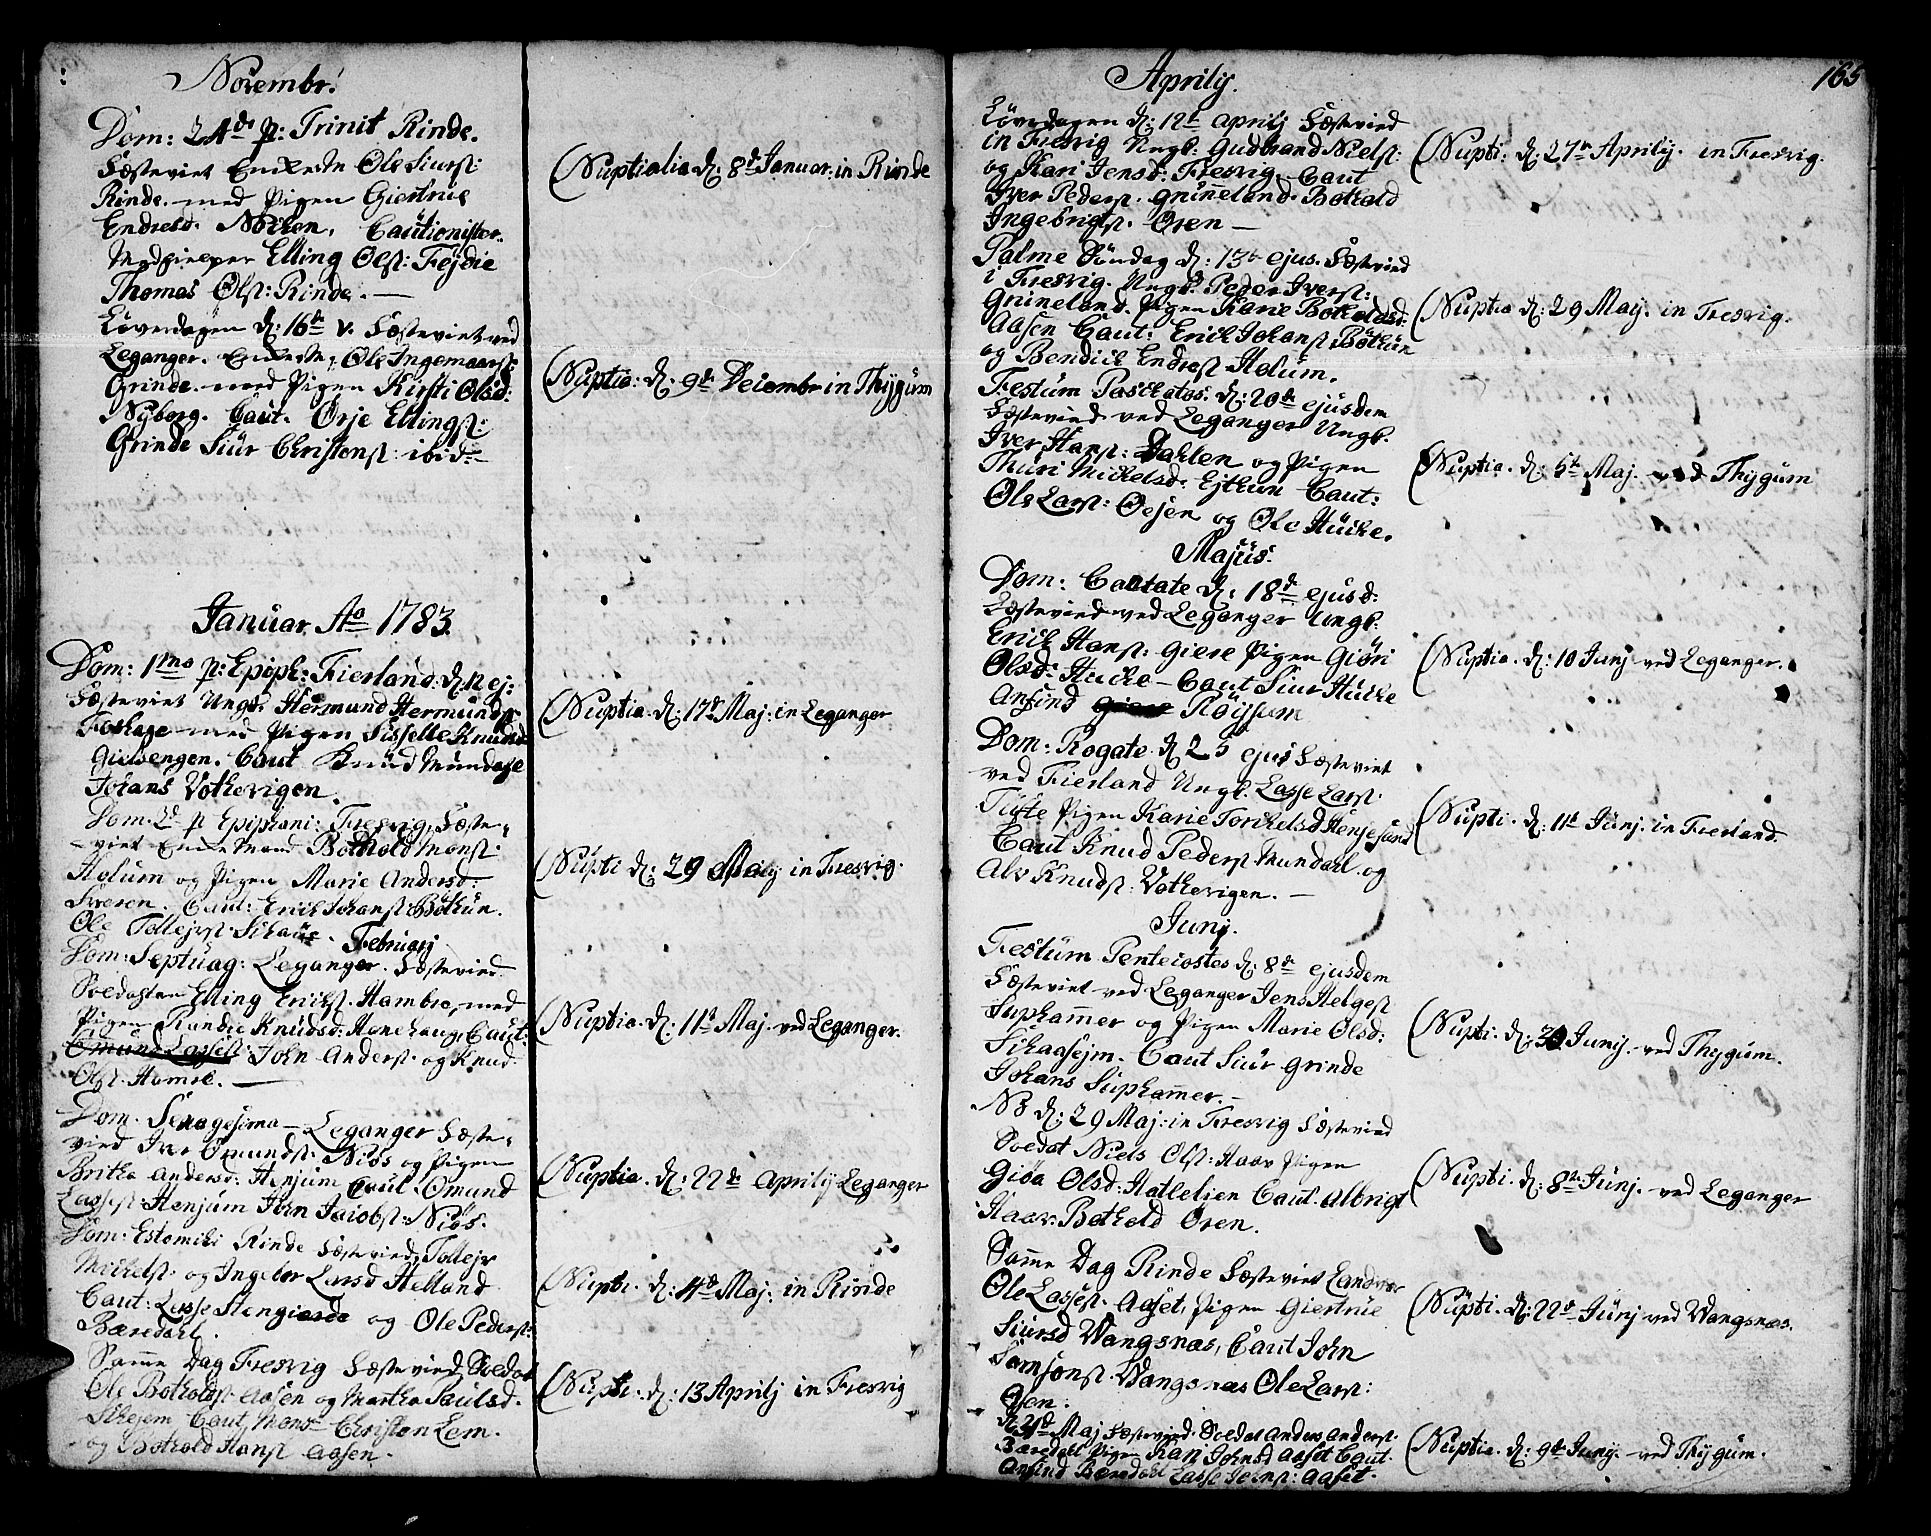 Novembr:
Dom: 24de p: Trinit Rinde.
Fæsteviet Enkede Ole Siursf:
Rinde. med Pigen Giertrue
Endresd. Nornen. Cautionister
Elling Olsf: Fejdie
Thomas Olsf: Rinde. —
Løverdagen d: 16de v. Fæsteviet ved
Leganger. Enkede: Ole Ingemaarsf:
Grinde med Pigen Kirsti Olsd:
Nyborg. Caut. Orje Ellingsf:
Grinde Siur Christensf: ibid:
(Nuptialia d: 8de Januar: in Rinde
(Nuptia: d: 9de Decembr in Thygum
Januar. Ao 1783.
Dom: 1ma p: Epiph: Fierland: d:
Fæsteviet Ungk. Hermund Hermunds
med Pigen Sisselle Knudsd
Caut Knud Mundahl
Johans Votkevigen.
Dom. 2d p Epiphani: Fresvig. Fæste-
viet Enkemand Bothold Monsf:
Holum og Pigen Marie Andersd:
Sværen. Caut: Erich Johansf: Bøthun.
Ole Tollejvsf: Schaue.
Februarj
Dom: Septuag: Leganger. Fæstevied
Soldaten Elling Erichsf. Hambre, med
Pigen Randie Knudsd: Henehaug, Caut:
Omund Lassesf: John Andersf. og Knud
Olsf. Hamre. —
Dom. Sexagesima — Leganger Fæste-
vied Iver Omundsf. Niøs og Pigen
Britha Andersd: Henjum Caut Omund
Lassesf: Henjum John Jacobsf: Niøs.
Dom: Estomihi Rinde Fæstevied Tollejv
Michelsf. og Ingebor Larsd Helland
Caut: Lasse Stengierde og Ole Pedersf:
Bæredahl.
Samme Dag Fresvig Fæstevied Soldat
Ole Botholdsf Aasen og Martha Saulsd.
Skejem Caut. Mons Christen Lem.
og Bothold Hansf Aasen.
(Nuptia. d: 17de Maj: in Leganger
(Nupti d: 29 Maij in Fresvig.
(Nuptia. d: 11te Maj. ved Leganger.
(Nuptia. d: 22de Aprilij Leganger
(Nupti. d: 4de Maj: in Rinde
(Nupti. d: 13 Aprilj in Fresvig
165
Aprilij.
Løverdagen d: 12te Aprilj Fæstevied
in Fresvig Ungk: Gudbrand Nielsf:
og Kari Jensd: Fresvig Caut
Iver Pedersf. Grinneland. Bothold
Ingebrigtsf. Oren —
Palme Søndag d: 13de ejus. Fæstevied
i Fresvig. Ungk. Peder Iversf:
Grinneland. Pigen Karie Botholdsd.
Aasen Caut: Erich Johansf. Bøthun
og Bendich Endresf Holum.
Festum Paschatos. d: 20de ejusdem
Fæstevied ved Leganger Ungk.
Iver Hansf: Dahlen og Pigen
Thuri Michelsd: Ejthun Caut:
Ole Larsf: Oejen og Ole Hucke.
Majus.
Dom: Cantate d: 18de ejusd:
Fæstevied ved Leganger Ungk:
Erich Hansf. Giere Pigen Giøri
Olsd: Hucke — Caut Siur Hucke
Ansind Røysum
Dom: Rogate. d 25 ejus Fæsteviet
ved Fierland Ungk. Lasse Larsf.
Tufte Pigen Karie Torchelsd Hensesand
Caut Knud Pedersf Mundahl og
Alv Knudsf: Votkevigen. —
Junij.
Festum Pentecostes d: 8de ejusdem
Fæsteviet ved Leganger Jens Helgesf
Suphammer og Pigen Marie Olsd:
Schaasejm. Caut Siur Grinde
Johans Suphammer. —
NB d: 29 Maj: in Fresvig Fæstevied
Soldat Niels Olsf: Haav Pigen
Giøa Olsd: Hatlelien Caut. Albrigt
Haav. Bothold Oren.
Samme Dag Rinde Fæsteviet Landvær
Ole Lassesf. Aaset, Pigen Giertrue
Siursd Wangsnæs, Caut John
Samsonsf. Wangsnæs Ole Larsf:
Oyen.
d: 21de Maj Fæstevied. Soldat Anders Andersf.
Bæredahl Pigen Kari Johnsd Aaset Caut.
Ansind Bæredahl Lasse Johnsf: Aaset.
(Nupti. d: 27de Aprilij. in Fresvig.
(Nuptia d: 29 Maij. in Fresvig.
(Nuptia. d: 5te Maj. ved Thygum
(Nuptia. d: 10 Junj ved Leganger.
(Nupti. d: 11te Junj. in Fierland.
(Nupti. d: 30 Junij. ved Thygum.
(Nupti. d: 8de Junj. ved Leganger
(Nupti. d: 22de Junj ved Wangsnæs.
(Nuptia. d: 9de Junij. ved Thygum.